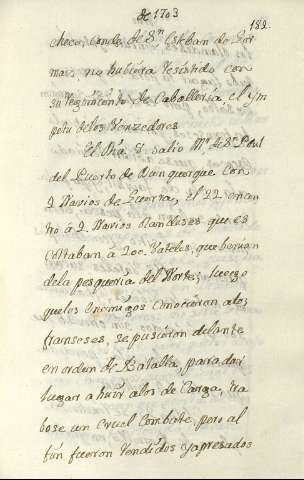 de 1703
182.
checo, Conde de S.n Esteban de Gor
maz, no hubiera resistido con
su regimiento de Caballeria el ym
petu delos Venzedores
El dia 2. salio Mr. de S.n Paul
del Puerto de Dunquerque con
2. Navios de Guerra, el 22 encon
tró á 2. Navios Olandeses que es
coltaban á 200. Vateles, que benian
dela pesqueria del Norte; luego
quelos Enemigos conocieron alos
franseses, se pusieron delante
en orden de Batalla, para dar
lugar a huir alos de Carga, tra
bose un Cruel Combate, pero al
fin fueron rendidos y apresados